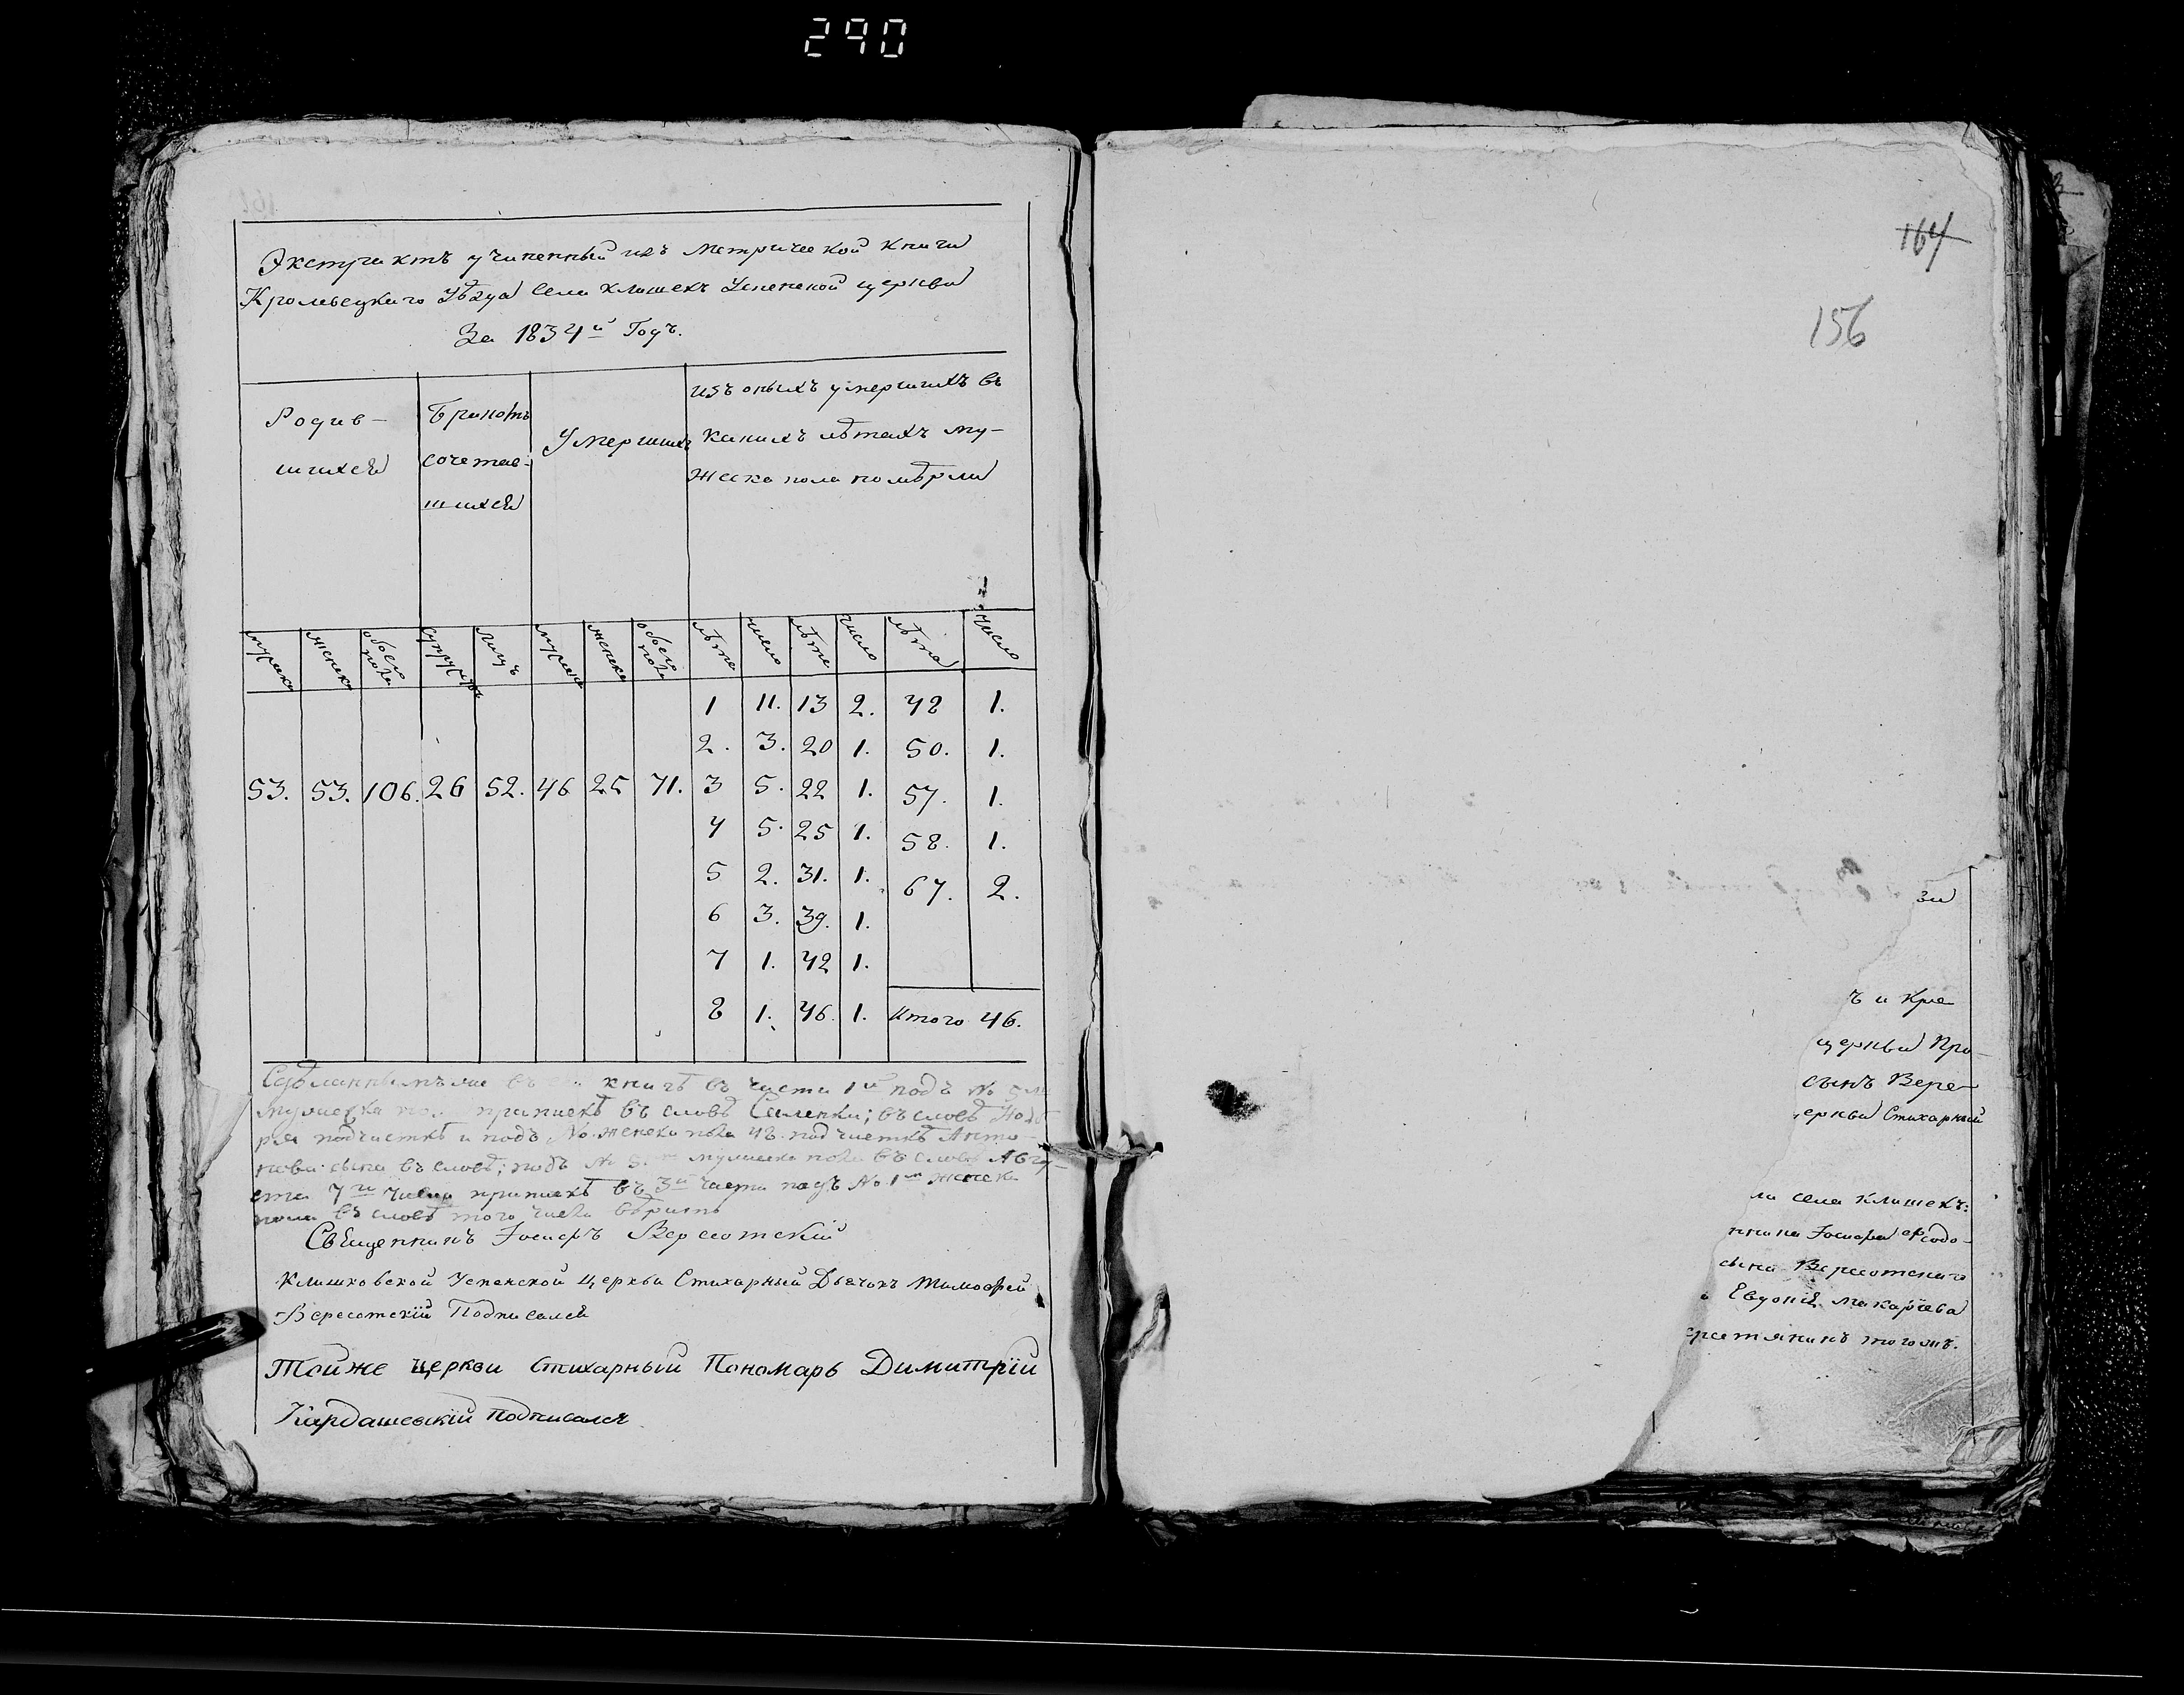 290
Экстрактъ учиненный изъ Метрической книги
Кролевецкаго Уѣзда Села Клишекъ Успенской церкви
За 1834й Годъ.
Родив-
шихся
Бракомъ
сочетав-
шихся
Умершихъ
изъ оныхъ умершихъ въ
какихъ лѣтахъ му-
жеска пола померли
мужеска женска обоего пола супружествъ лицъ мужеска женска обоего пола лѣта число лѣта число лѣта число
1 11. 13 2. 48 1.
2. 3. 20 1. 50. 1.
53. 53. 106. 26 52. 46 25 71. 3 5. 22 1. 57. 1.
4 5. 25 1. 58. 1.
5 2. 31. 1. 67. 2.
6 3. 39. 1.
7 1. 42 1.
8 1. 46. 1. Итого 46.
книгѣ въ части 1й подъ № 5м
припискѣ въ словѣ ; въ словѣ
подчисткѣ и подъ № женска пола 4ъ. подчисткѣ Анто-
нова сына въ словѣ; подъ № мужеска пола въ словѣ Авгу-
ста 7го числа припискѣ въ 3й части подъ № 1м женска
пола въ словѣ того числа вѣрить
Священникъ Іосифъ Вересотскій
Клишковской Успенской Церкви Стихарный Дьячокъ Тимофей
Вересотскій Подписался
Тойже церкви Стихарный Пономарь Димитрій
Кардашевскій Подписался
164
156
зи
ъ и Кре-
церкви Про-
сынъ Вере-
церкви Стихарный
ла села Клишекъ:
нника Іосифа Ѳеодо-
сына Вересотскаго
Евдокія Макаріева
крестьянинъ тогожъ.